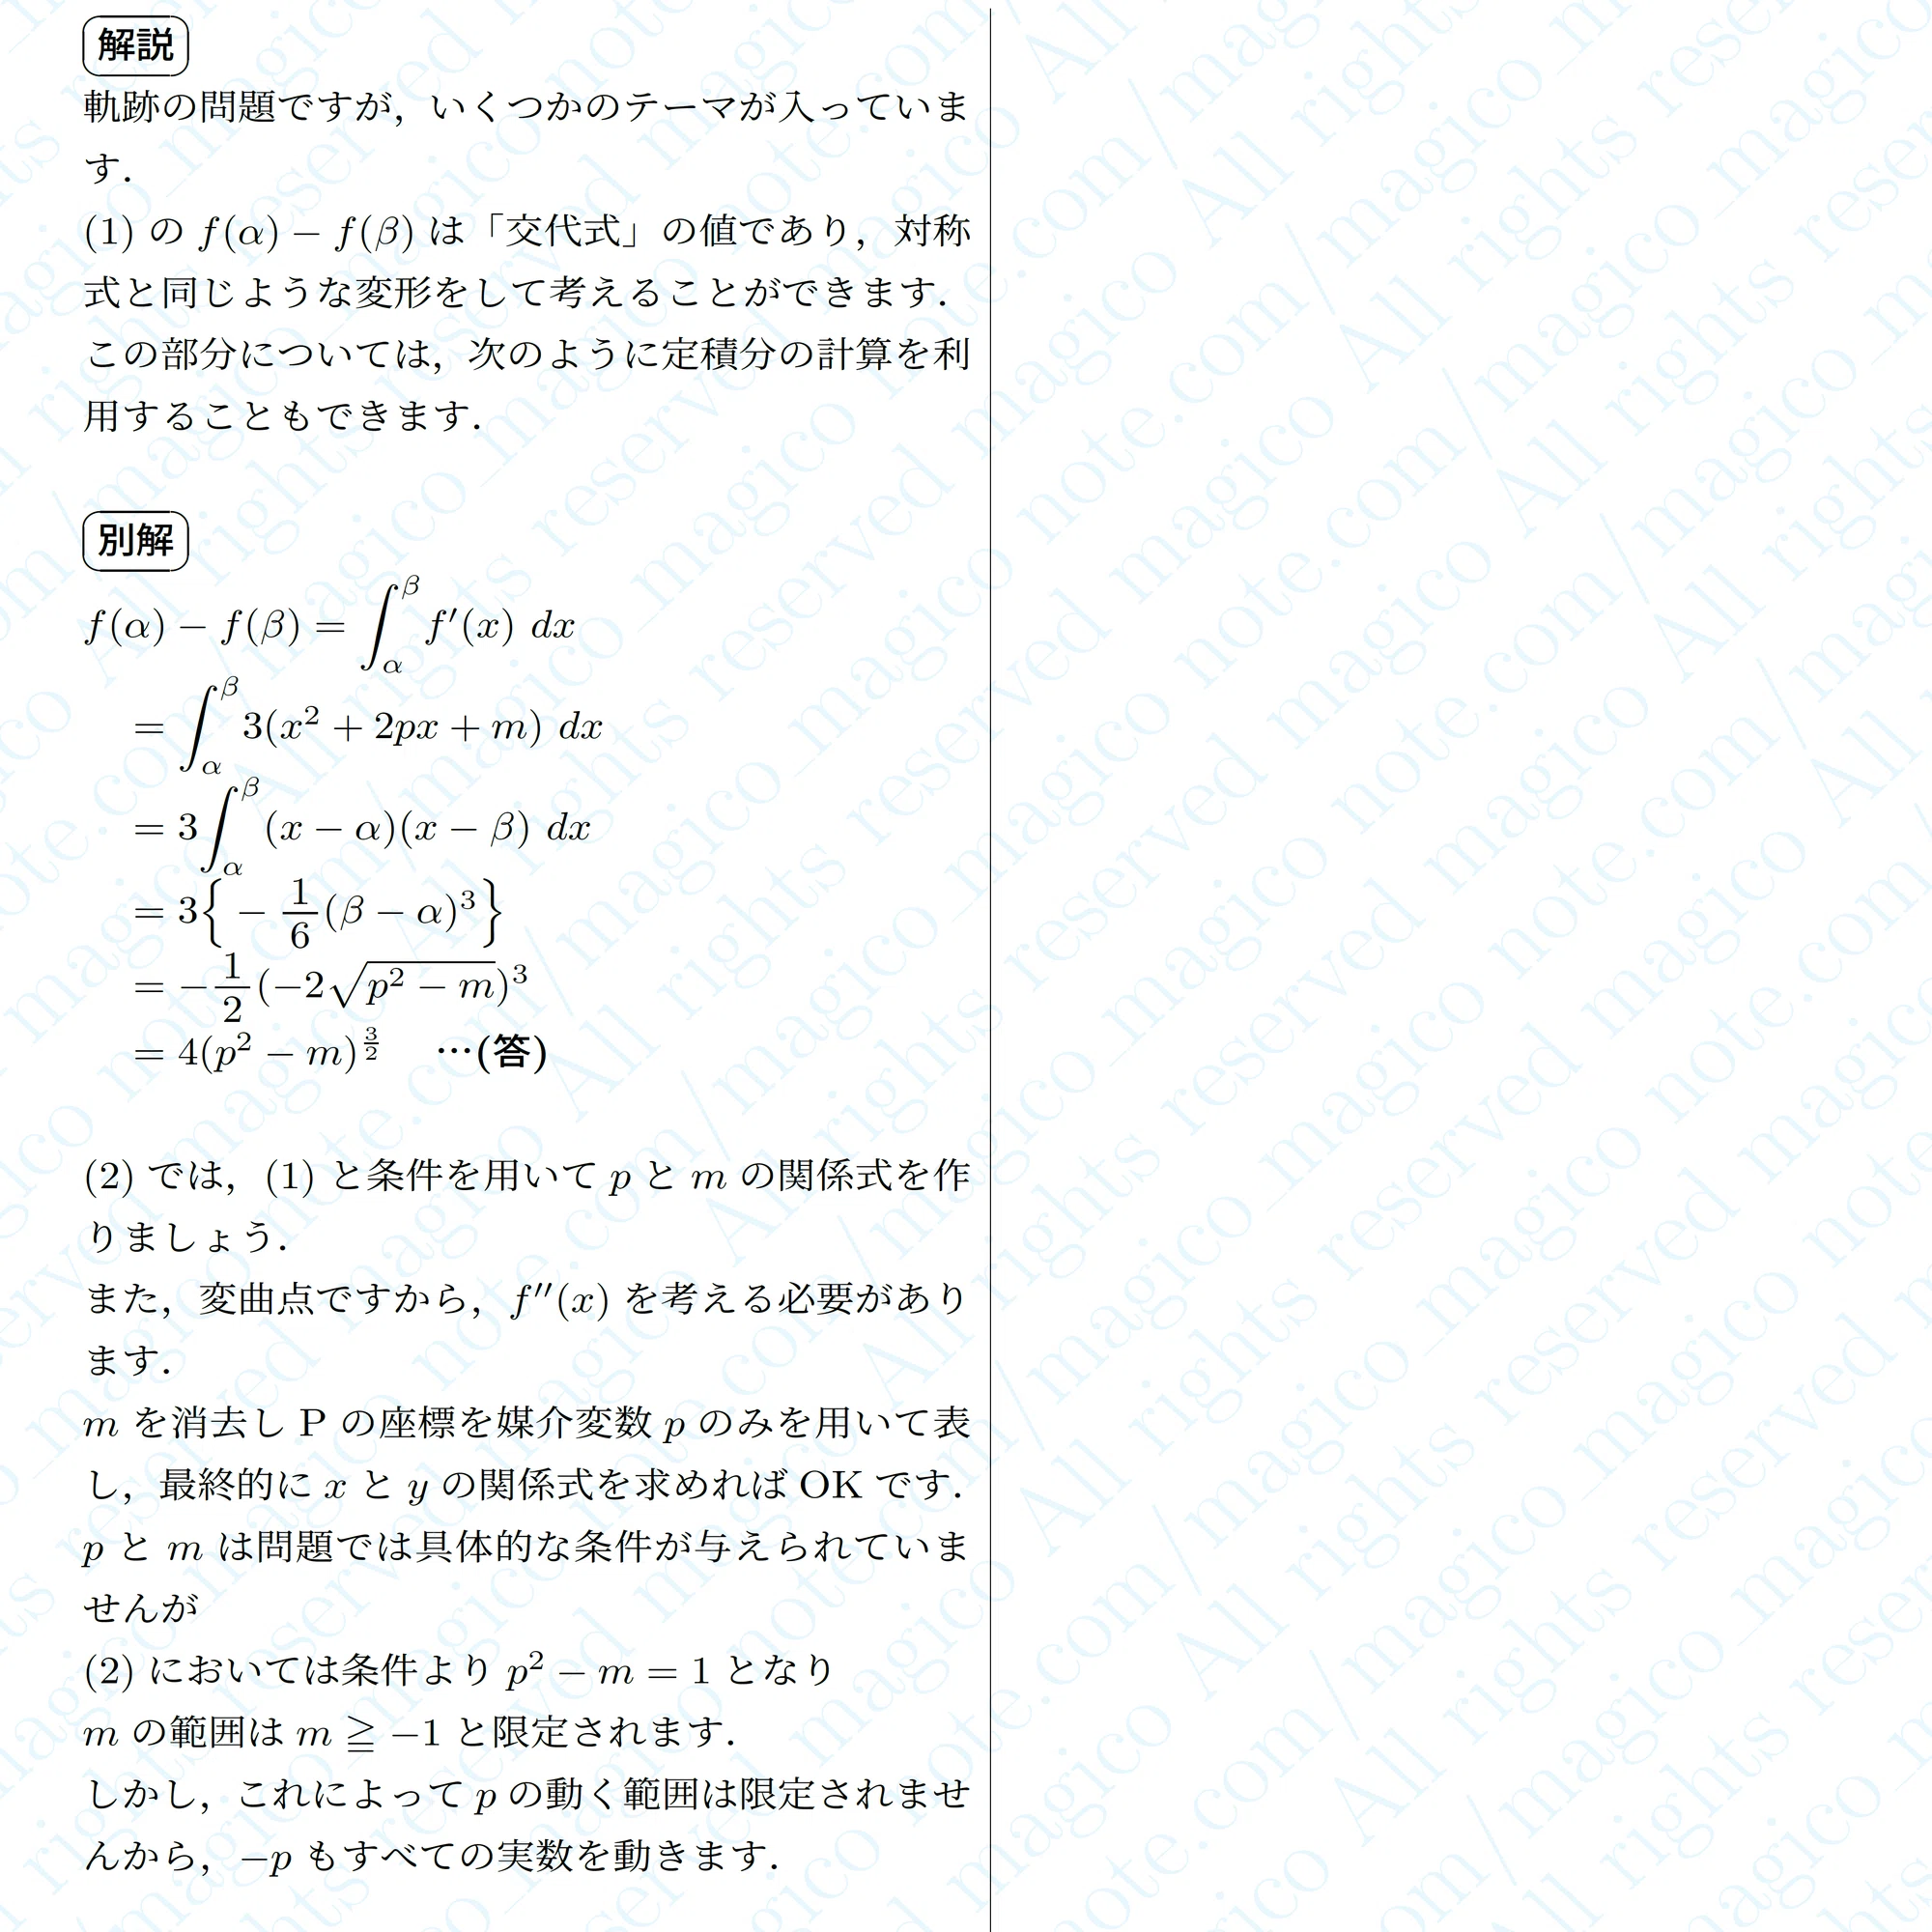 解説
軌跡の問題ですが，いくつかのテーマが入っていま
す．
(1) の f(α) − f(β) は「交代式」の値であり，対称
式と同じような変形をして考えることができます．
この部分については，次のように定積分の計算を利
用することもできます．
別解
f(α) − f(β) = ∫_α^β f′(x) dx
= ∫_α^β 3(x² + 2px + m) dx
= 3∫_α^β (x − α)(x − β) dx
= 3{ − 1/6 (β − α)³ }
= −1/2 (−2√(p² − m))³
= 4(p² − m)^(3/2) …(答)
(2) では，(1) と条件を用いて p と m の関係式を作
りましょう．
また，変曲点ですから，f″(x) を考える必要があり
ます．
m を消去し P の座標を媒介変数 p のみを用いて表
し，最終的に x と y の関係式を求めれば OK です．
p と m は問題では具体的な条件が与えられていま
せんが
(2) においては条件より p² − m = 1 となり
m の範囲は m ≧ −1 と限定されます．
しかし，これによって p の動く範囲は限定されませ
んから，−p もすべての実数を動きます．
note.com/magico_magico All rights reserved